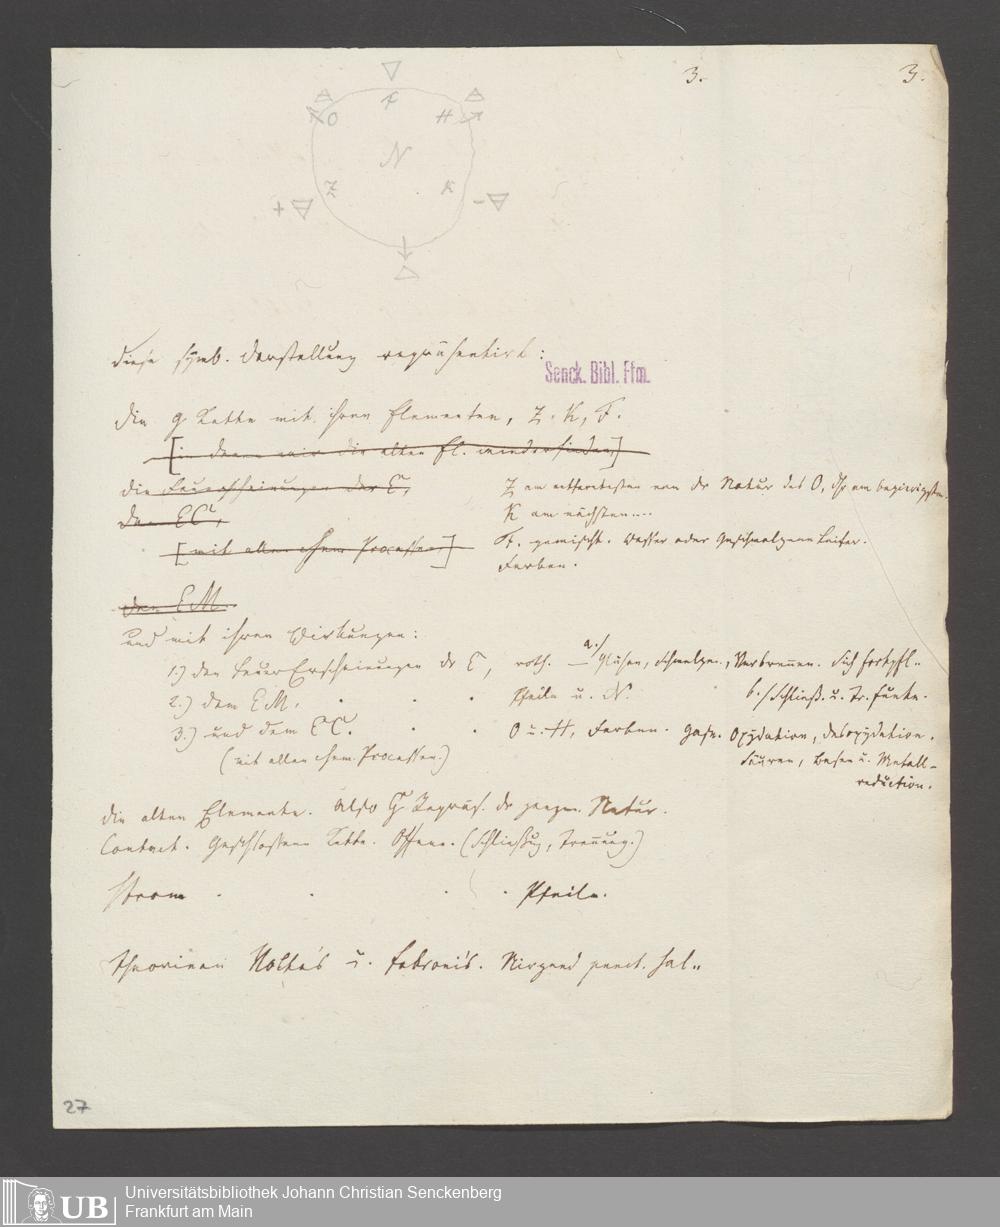 3. 3.
F
O H
N
Z K
+ -
diese symb. Darstellung repräsentirt:
Senck. Bibl. Ffm.
die g Kette mit ihren Elementen, Z. K, F.
[in denen wir die alten El. wiederfinden,]
die Feuerscheinungen der E,
Z am entferntesten von der Natur des O, ihr am begierigsten.
den EC,
K am nächsten....
[mit allen chem Processen,]
F. gemischt. Wasser oder Geschmolzene Leiter.
Farben.
den EM.
und mit ihren Wirkungen:
1.) den FeuerErscheinungen der E, roth. — a./ Glühen, Schmelzen, Verbrennen. Sich fortpfl..
2.) dem EM. . . . Pfeile u. N. b./ Schließ. u. Tr. Funke.
3.) und dem EC. . . O u. H, Farben. Gase. Oxydation, Desoxydation.
(mit allen chem. Processen.)
Säuren, Basen u. Metall-
reduction.
die alten Elemente. Also Repräs. der ganzen Natur.
Contact. Geschlossene Kette. Offene. (Schließung, Trennung.)
Strom . . . . Pfeile.
Theorieen Volta's u. Fabroni's. Nirgend punct. sal..
27
UB
Universitätsbibliothek Johann Christian Senckenberg
Frankfurt am Main